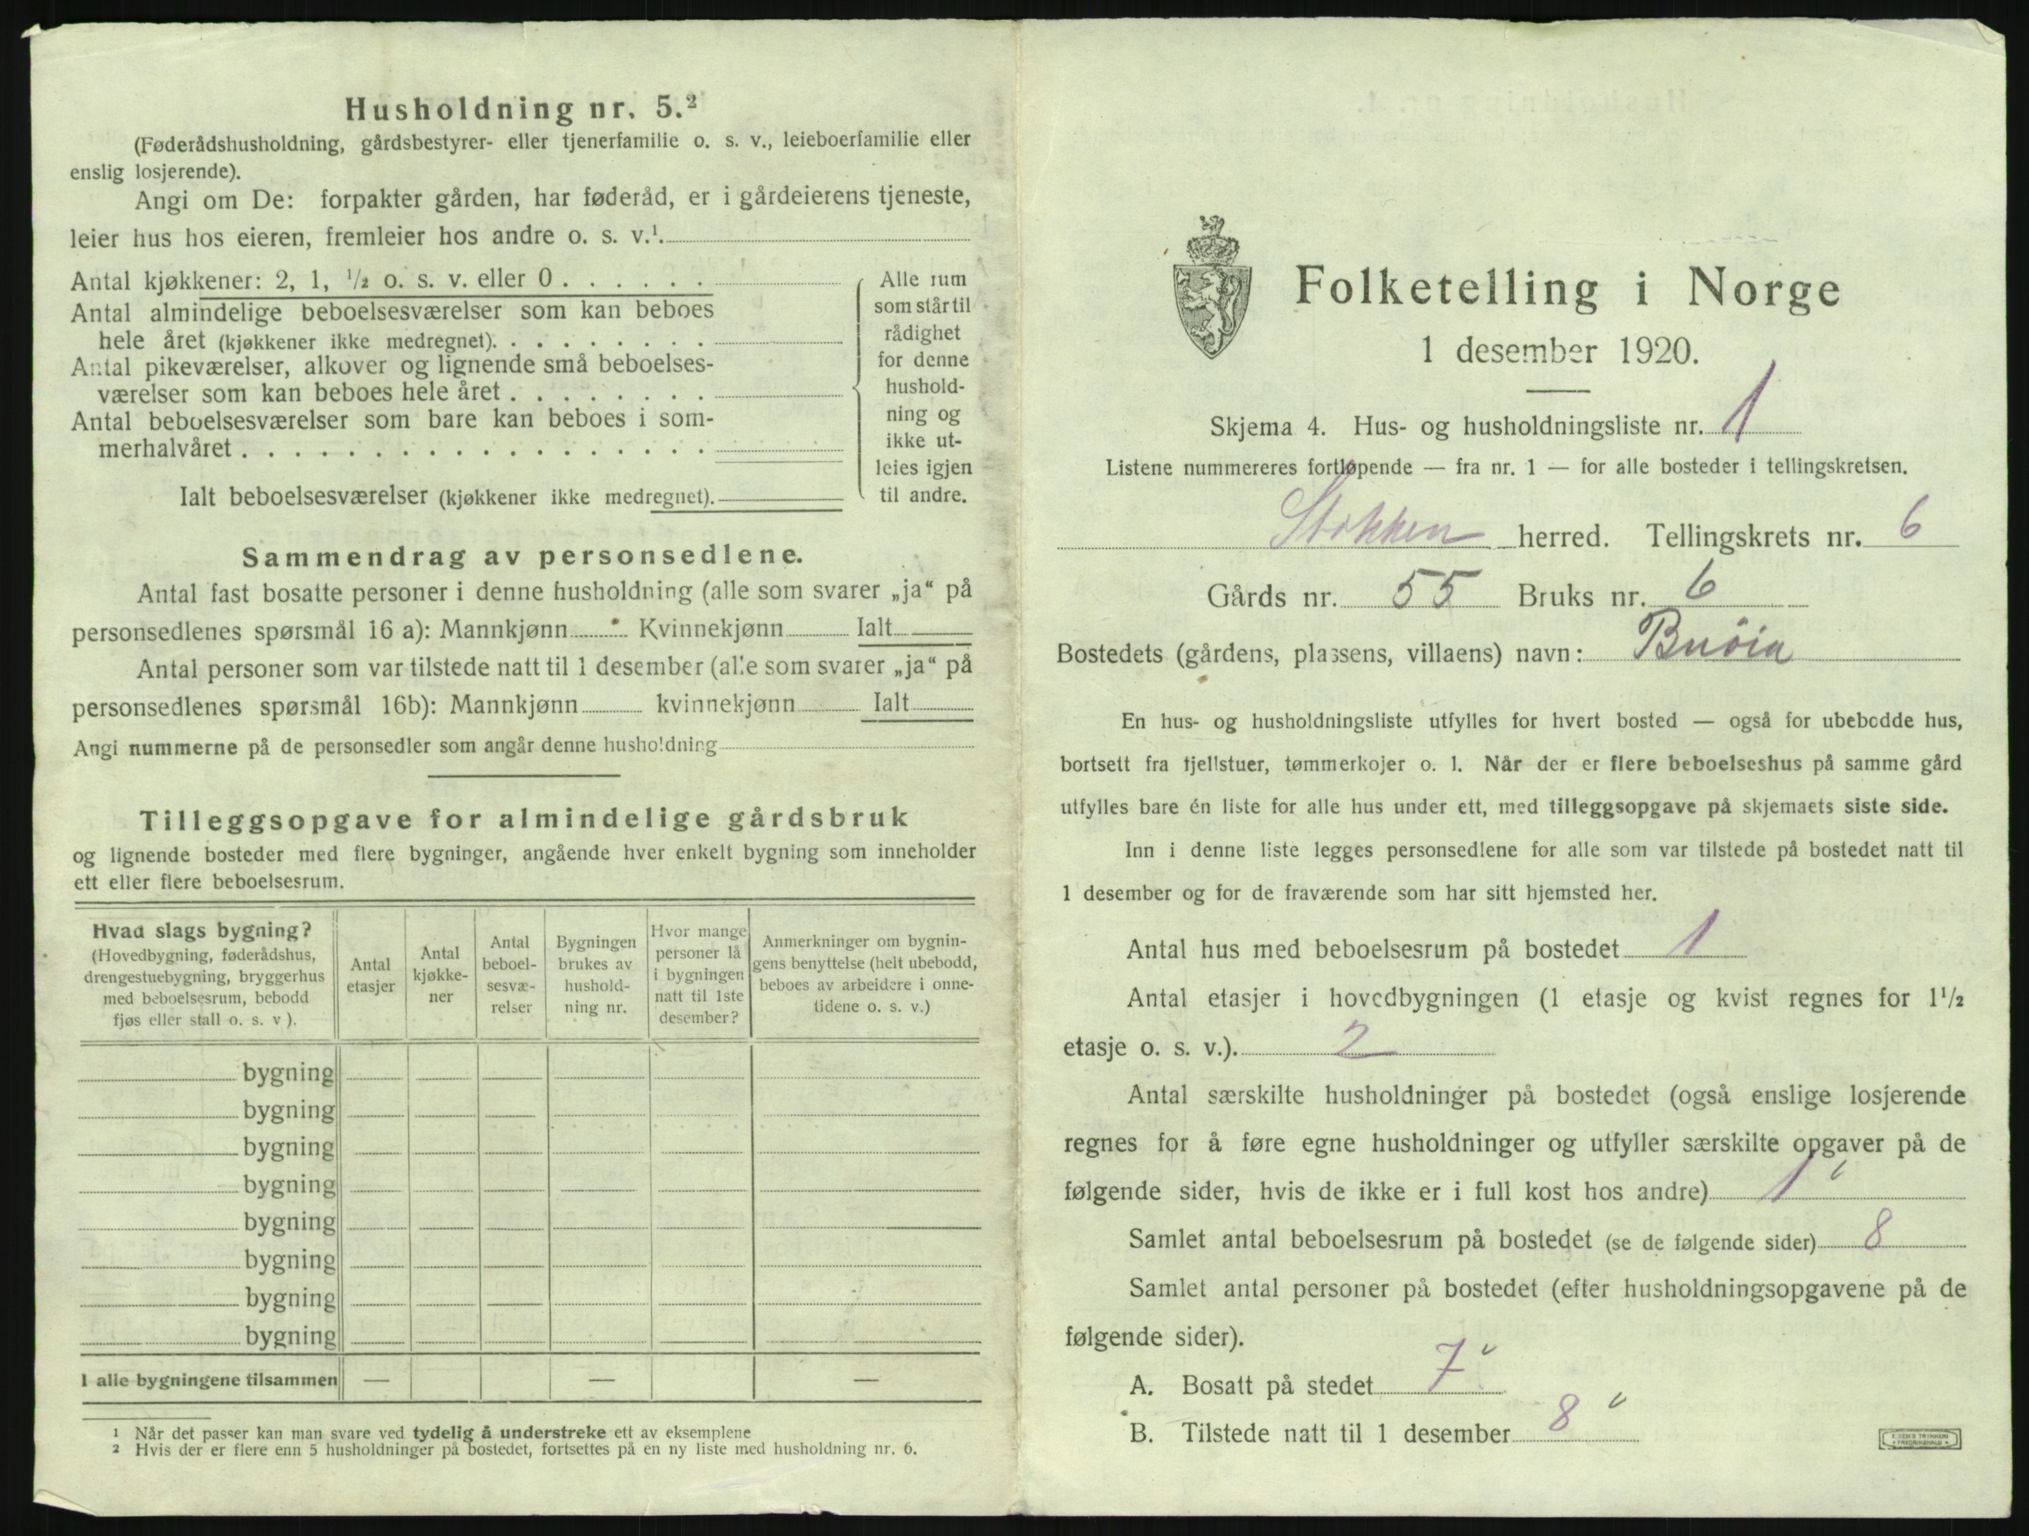 Husholdning nr. 5.²
(Føderådshusholdning, gårdsbestyrer- eller tjenerfamilie o. s. v., leieboerfamilie eller
enslig losjerende).
Angi om De: forpakter gården, har føderåd, er i gårdeierens tjeneste,
leier hus hos eieren, fremleier hos andre o. s. v.¹.
Antal kjøkkener: 2, 1, ½ o. s. v. eller 0 . . . . . .
Antal almindelige beboelsesværelser som kan beboes
hele året (kjøkkener ikke medregnet). . . . . . . . .
Antal pikeværelser, alkover og lignende små beboelses-
værelser som kan beboes hele året . . . . . . . .
Antal beboelsesværelser som bare kan beboes i som-
merhalvåret . . . . . . . . . . . . . . . . . .
Ialt beboelsesværelser (kjøkkener ikke medregnet).
Alle rum
som står til
rådighet
for denne
hushold-
ning og
ikke ut-
leies igjen
til andre.
Sammendrag av personsedlene.
Antal fast bosatte personer i denne husholdning (alle som svarer „ja“ på
personsedlenes spørsmål 16 a): Mannkjønn Kvinnekjønn Ialt
Antal personer som var tilstede natt til 1 desember (alle som svarer „ja“ på
personsedlenes spørsmål 16b): Mannkjønn kvinnekjønn Ialt
Angi nummerne på de personsedler som angår denne husholdning
Tilleggsopgave for almindelige gårdsbruk
og lignende bosteder med flere bygninger, angående hver enkelt bygning som inneholder
ett eller flere beboelsesrum.
Hvad slags bygning?
(Hovedbygning, føderådshus,
drengestuebygning, bryggerhus
med beboelsesrum, bebodd
fjøs eller stall o. s. v ).
Antal
etasjer
Antal
kjøkke-
ner
Antal
beboel-
sesvæ-
relser
Bygningen
brukes av
hushold-
ning nr.
Hvor mange
personer lå
i bygningen
natt til 1ste
desember?
Anmerkninger om bygnin-
gens benyttelse (helt ubebodd,
beboes av arbeidere i onne-
tidene o. s. v.)
bygning
bygning
bygning
bygning
bygning
bygning
bygning
bygning
I alle bygningene tilsammen — — —
¹ Når det passer kan man svare ved tydelig å understreke ett av eksemplene
² Hvis der er flere enn 5 husholdninger på bostedet, fortsettes på en ny liste med husholdning nr. 6.
Folketelling i Norge
1 desember 1920.
Skjema 4. Hus- og husholdningsliste nr. 1
Listene nummereres fortløpende — fra nr. 1 — for alle bosteder i tellingskretsen.
Stokken herred. Tellingskrets nr. 6
Gårds nr. 55 Bruks nr. 6
Bostedets (gårdens, plassens, villaens) navn: Buøia
En hus- og husholdningsliste utfylles for hvert bosted — også for ubebodde hus,
bortsett fra fjellstuer, tømmerkojer o. l. Når der er flere beboelseshus på samme gård
utfylles bare én liste for alle hus under ett, med tilleggsopgave på skjemaets siste side.
Inn i denne liste legges personsedlene for alle som var tilstede på bostedet natt til
1 desember og for de fraværende som har sitt hjemsted her.
Antal hus med beboelsesrum på bostedet 1
Antal etasjer i hovedbygningen (1 etasje og kvist regnes for 1½
etasje o. s. v.). 2
Antal særskilte husholdninger på bostedet (også enslige losjerende
regnes for å føre egne husholdninger og utfyller særskilte opgaver på de
følgende sider, hvis de ikke er i full kost hos andre) 1
Samlet antal beboelsesrum på bostedet (se de følgende sider) 8
Samlet antal personer på bostedet (efter husholdningsopgavene på de
følgende sider).
A. Bosatt på stedet 7
B. Tilstede natt til 1 desember 8